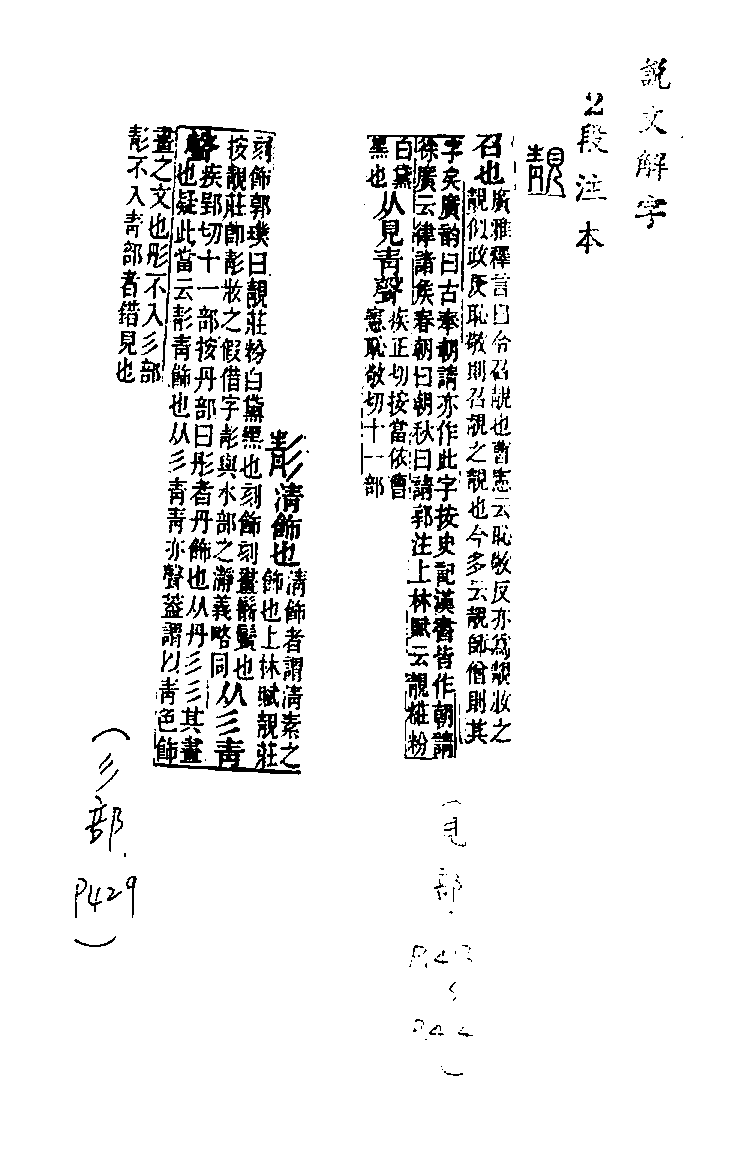 說文解字
2段注本
靚
召也廣雅釋言曰令召靚也曹憲云恥敬反亦為靚妝之
靚似政反恥敬則召靚之靚也今多云靚師僧則其
字矣廣韵曰古奉朝請亦作此字按史記漢書皆作朝請
徐廣云律諸侯春朝曰朝秋曰請郭注上林賦云靚糚粉
白黛
黑也从見青聲疾正切按當依曹
憲恥敬切十一部
彭清飾也清飾者謂清素之
飾也上林賦靚莊
刻飾郭璞曰靚莊粉白黛黑也刻飾刻畫鬋鬢也
按靚莊卽彰妝之假借字彰與水部之瀞義略同从彡青
聲疾郢切十一部按丹部曰彤者丹飾也从丹彡彡其畫
也疑此當云彰青飾也从彡青青亦聲葢謂以青色飾
畫之文也彤不入彡部
彰不入青部者錯見也
(見部.
(彡部.
P429)